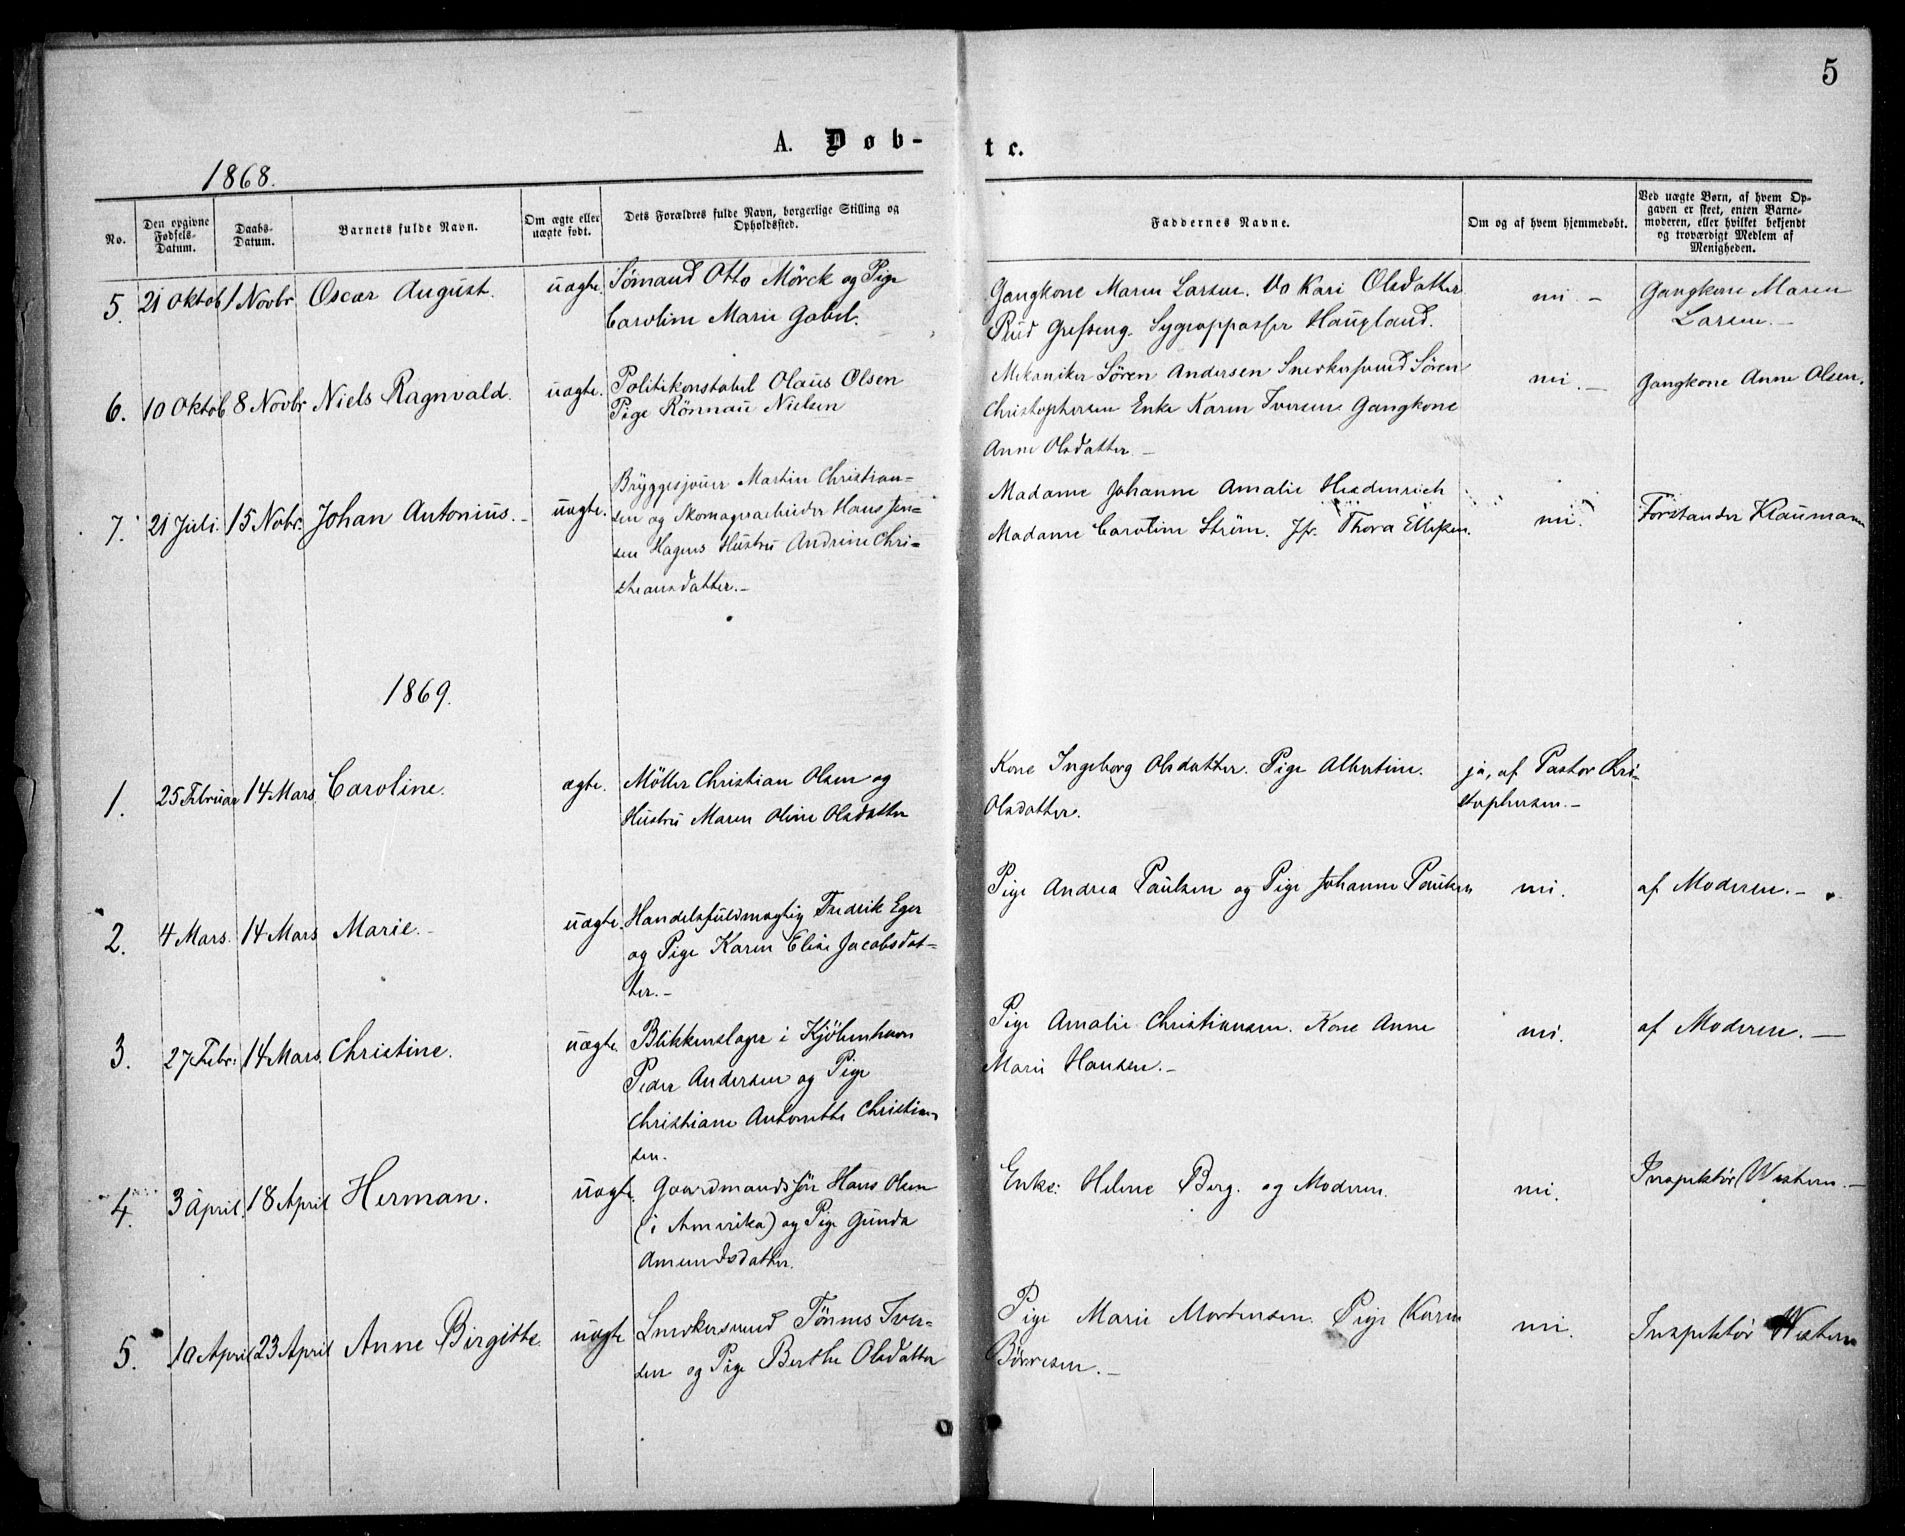 5
A. Døb-
te.
1868.
No.
Den opgivne Fødsels-Datum.
Daabs-Datum.
Barnets fulde Navn.
Om ægte eller uægte født.
Dets Forældres fulde Navn, borgerlige Stilling og Opholdssted.
Faddernes Navne.
Om og af hvem hjemmedøbt.
Ved uægte Børn, af hvem Opgaven er skeet, enten Barnemoderen, eller hvilket bekjendt og troværdigt Medlem af Menigheden.
5. 21 Oktob 1 Novbr Oscar August. uægte. Sømand Otto Mörck og Pige
Caroline Marie Gabel.
Gangkone Maren Larsen. Do Kari Olsdatter
Rud Grefseng. Sygeopposser Haugland.
nei. —
Gangkone Maren
Larsen. —
6. 10 Oktob 8 Novbr Niels Ragnvald. uægte. Politikonstabel Olaus Olsen
Pige Rönnau Nielsen
Mekaniker Sören Andersen Snedkersvend Sören
Christophersen Enke Karen Iversen Gangkone
Anne Olsdatter. —
nei. —
Gangkone Anne Olsen.
7. 21 Juli. 15 Nobr. Johan Antonius. — uægte. Bryggesjouer Martin Christian-
sen og Skomagerarbeider Hans Jen-
sen Hagens Hustru Andrine Chri-
stiansdatter. —
Madame Johanne Amalie Heidenrich
Madame Caroline Strøm. Jfr. Thora Ellefsen.
nei.
Forstander Klaumann
1869.
1. 25 Februar 14 Mars. Caroline. ægte. Möller Christian Olsen og
Hustru Maren Oline Olsdatter
Kone Ingeborg Olsdatter. Pige Albertine.
Olsdatter.
ja, af Pastor Chri-
stophersen. —
2. 4 Mars. 14 Mars Marie. — uægte. Handelsfuldmægtig Fredrik Eger
og Pige Karen Elise Jacobsdat-
ter. —
Pige Andrea Paulsen og Pige Johanne Paulsen
nei.
af Moderen. —
3. 27 Febr. 14 Mars. Christine. uægte. Blikkenslager i Kjöbenhavn
Peder Andersen og Pige
Christiane Antonette Christian-
sen.
Pige Amalie Christiansen. Kone Anne
Marie Hansen. —
nei.
af Moderen. —
4. 3 April. 18 April Herman. uægte. Gaardmandssön Hans Olsen
(i Amerika) og Pige Gunda
Amundsdatter.
Enke: Helene Berg. og Moderen.
nei.
Inspektör Western. —
5. 10 April 23 April Anne Birgitte. uægte Snedkersvend Tönnes Iver-
sen og Pige Berthe Olsdatter
Pige Marie Mortensen. Pige Karen
Börresen. —
nei.
Inspektör Western